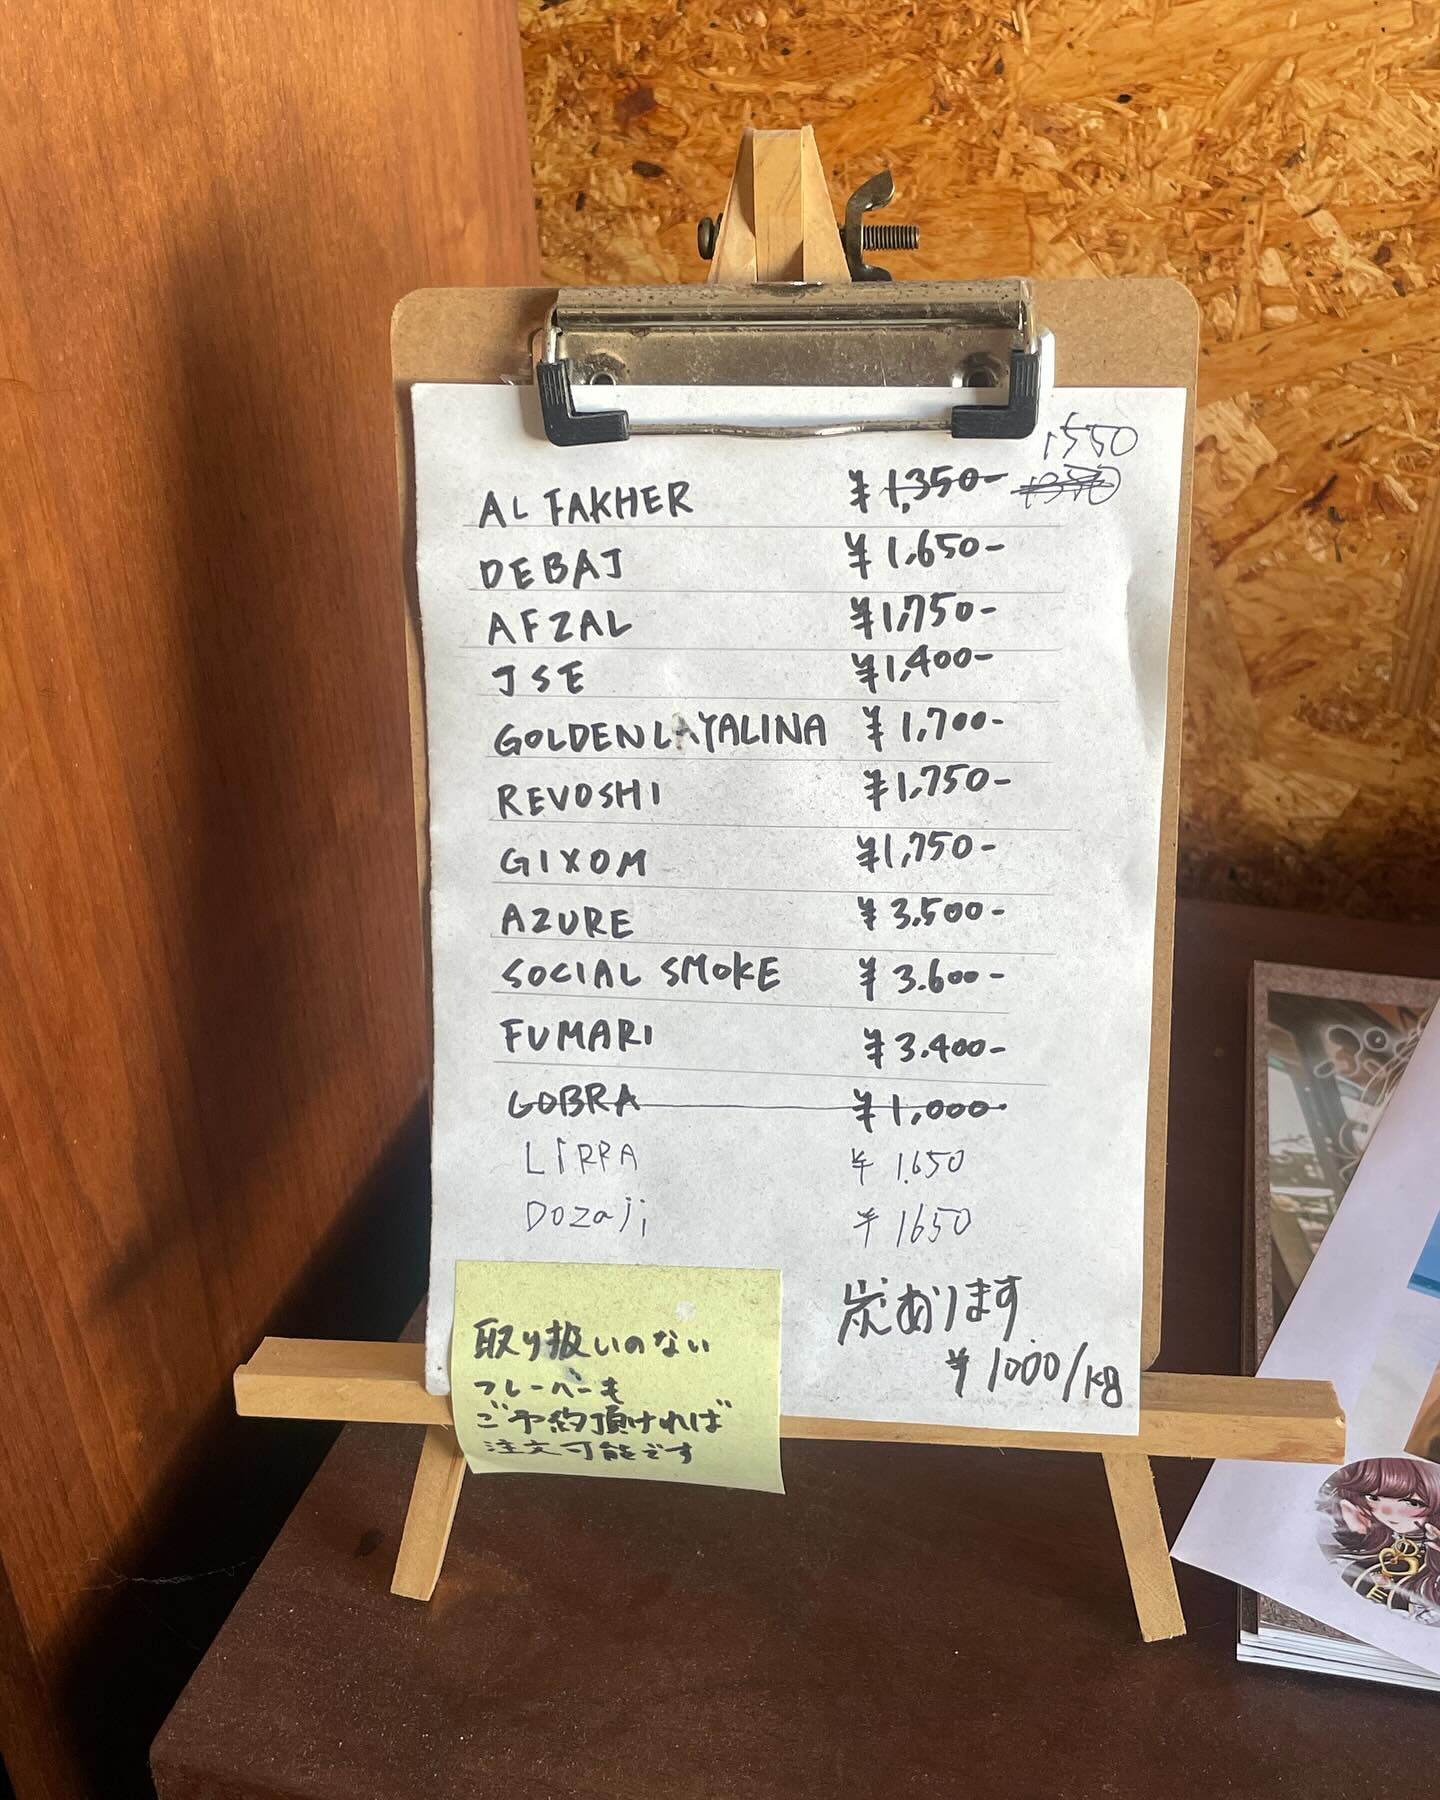 1550
AL FAKHER ¥1,350-
DEBAJ ¥1,650-
AFZAL ¥1,750-
JSE ¥1,400-
GOLDEN LAYALINA ¥1,700-
REVOSHI ¥1,750-
GIXOM ¥1,750-
AZURE ¥3,500-
SOCIAL SMOKE ¥3.600-
FUMARI ¥3.400-
COBRA ¥1,000-
LiRRA ¥1.650
Dozaji ¥1650
炭あります
¥1000/kg
取り扱いのない
フレーバーも
ご予約頂ければ
注文可能です